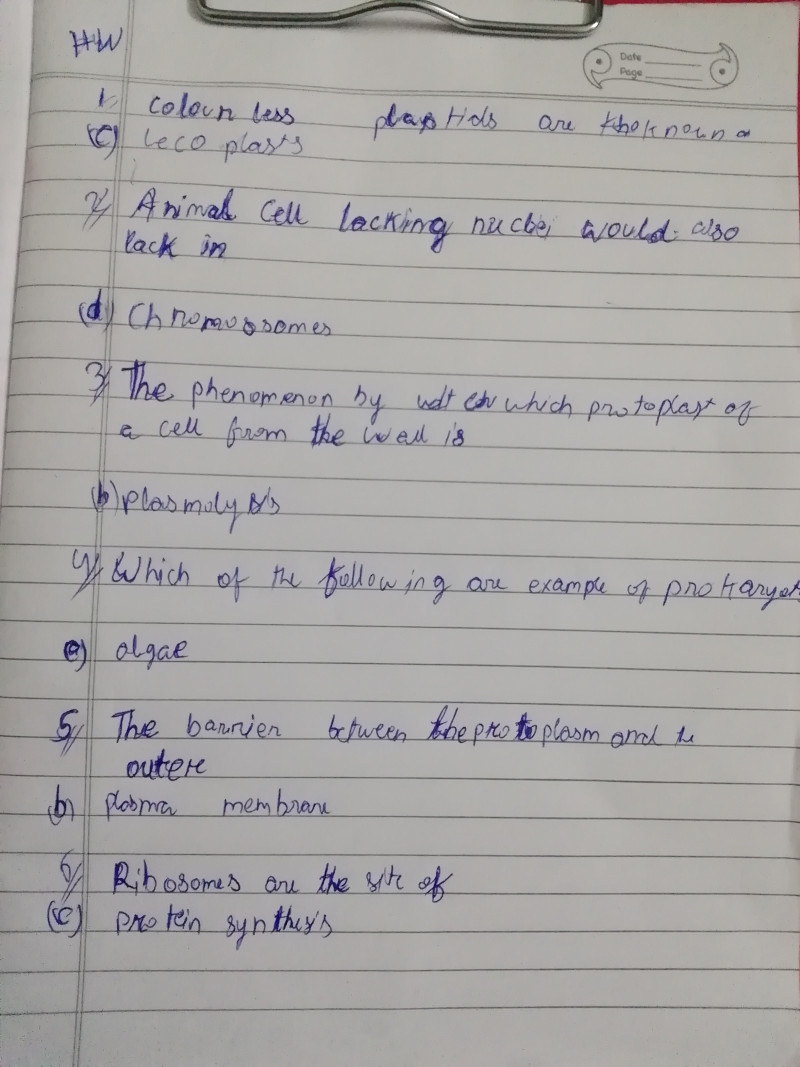 HW
Date
Page
1. Colour less plastids are known a
(c) leco plasts
2. Animal Cell lacking nuclei would also
lack in
(d) Chromosomes
3. The phenomenon by which protoplast of
a cell from the wall is
(b) Plasmolysis
4. Which of the following are example of prokaryot
algae
5. The barrier between the protoplasm and the
outere
b) plasma membrane
6. Ribosomes are the site of
(c) protein synthesis